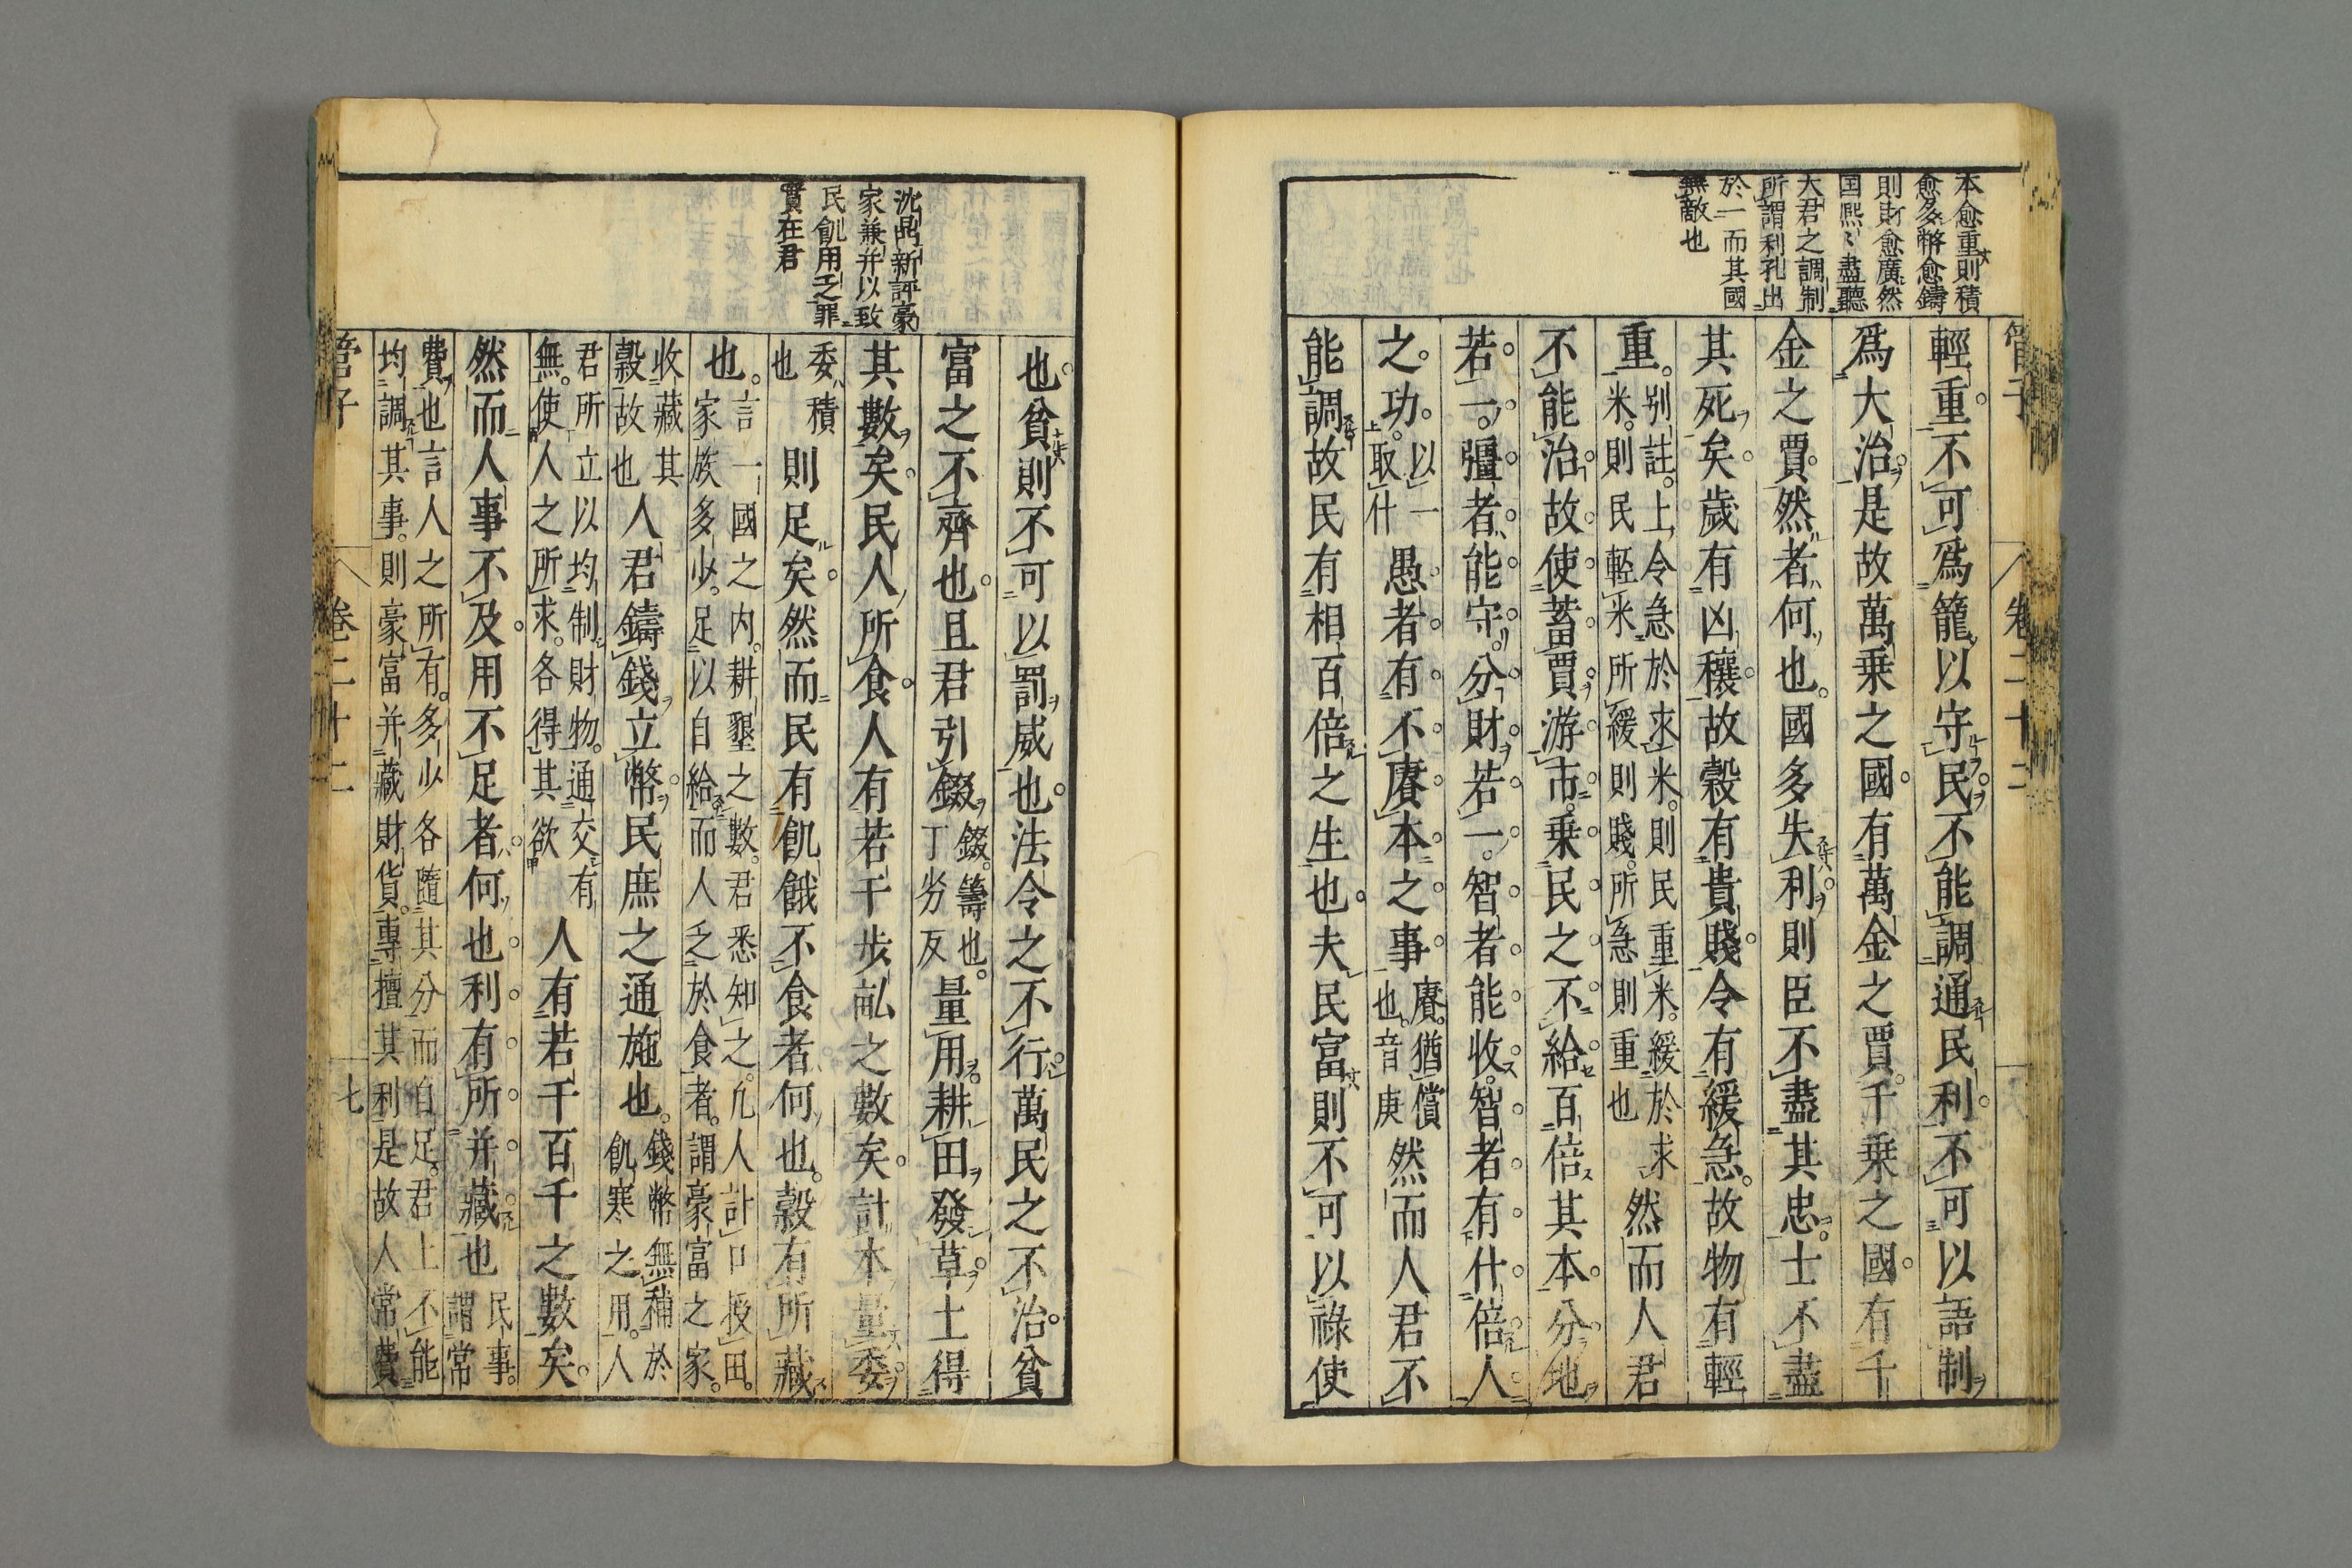 本愈重則積
愈多幣愈鑄
則財愈廣然
国熈〻盡聽
大君之調制
所謂利孔出
於一而其國
無敵也
管子
卷二十二
輕重不可爲籠以守民不能調通民利不可以語制
爲大治是故萬乗之國有萬金之賈千乗之國有千
金之賈然者何也國多失利則臣不盡其忠士不盡
其死矣歲有凶穰故穀有貴賤令有緩急故物有輕
重別註上令急於求米則民重米緩於求
米則民輕米所緩則賤所急則重也
然而人君
不能治故使蓄賈游市乗民之不給百倍其本分地
若一彊者能守分財若一智者能收智者有什倍人
之功以一
取什
愚者有不賡本之事賡猶償
也音庚
然而人君不
能調故民有相百倍之生也夫民富則不可以祿使
沈鼎新評豪
家兼并以致
民飢用乏罪
實在君
也貧則不可以罰威也法令之不行萬民之不治貧
富之不齊也且君引錣錣籌也
丁劣反
量用耕田發草土得
其數矣民人所食人有若干步畝之數矣計本量委
委積
也
則足矣然而民有飢餓不食者何也穀有所藏
也言一國之内耕墾之數君悉知之凢人計口授田
家族多少足以自給而人乏於食者謂豪富之家
收藏其
穀故也
人君鑄錢立幣民庶之通施也錢幣無補於
飢寒之用人
君所立以均制財物通交有
無使人之所求各得其欲
人有若千百千之數矣
然而人事不及用不足者何也利有所并藏也民事
謂常
費也言人之所有多少各隨其分而自足君上不能
均調其事則豪富并藏財貨專擅其利是故人常費
管子
卷二十二
七